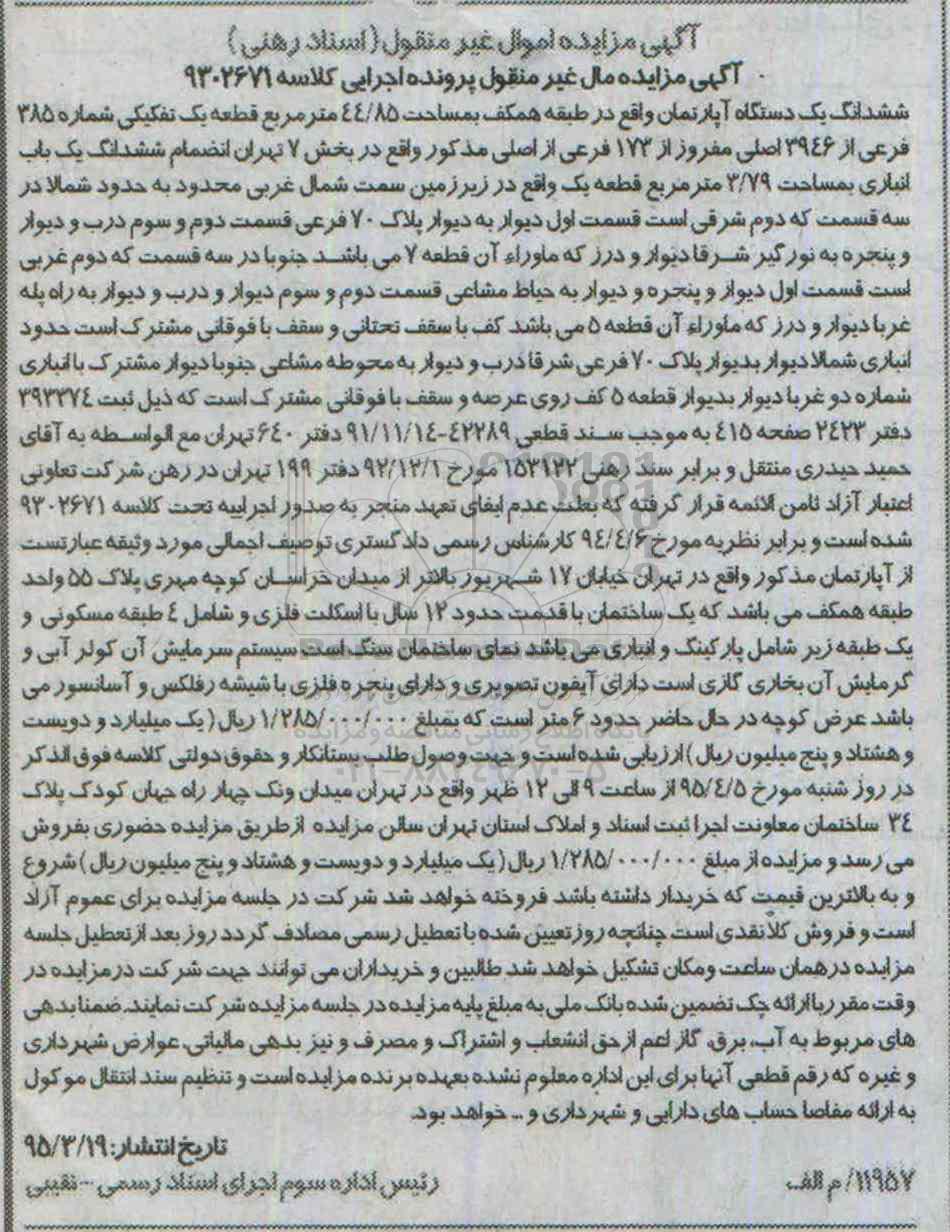 آگهی مزایده اموال غیر منقول (اسناد رهنی)
آگهی مزایده مال غیر منقول پرونده اجرایی کلاسه ۹۳۰۲۶۷۱
ششدانگ یک دستگاه آپارتمان واقع در طبقه همکف بمساحت ۴۴/۸۵ متر مربع قطعه یک تفکیکی شماره ۳۸۵
فرعی از ۳۹۴۶ اصلی مفروز از ۱۷۳ فرعی از اصلی مذکور واقع در بخش ۷ تهران انضمام ششدانگ یک باب
انباری بمساحت ۳/۷۹ متر مربع قطعه یک واقع در زیرزمین سمت شمال غربی محدود به حدود شمالا در
سه قسمت که دوم شرقی است قسمت اول دیوار به دیوار پلاک ۷۰ فرعی قسمت دوم و سوم درب و دیوار
و پنجره به نورگیر شرقا دیوار و درز که ماوراء آن قطعه ۷ می باشد جنوبا در سه قسمت که دوم غربی
است قسمت اول دیوار و پنجره و دیوار به حیاط مشاعی قسمت دوم و سوم دیوار و درب و دیوار به راه پله
غربا دیوار و درز که ماوراء آن قطعه ۵ می باشد کف با سقف تحتانی و سقف با فوقانی مشترک است حدود
انباری شمالا دیوار بدیوار پلاک ۷۰ فرعی شرقا درب و دیوار به محوطه مشاعی جنوبا دیوار مشترک با انباری
شماره دو غربا دیوار بدیوار قطعه ۵ کف روی عرصه و سقف با فوقانی مشترک است که ذیل ثبت ۳۹۳۳۷۴
دفتر ۲۴۲۳ صفحه ۴۱۵ به موجب سند قطعی ۴۲۲۸۹-۹۱/۱۱/۱۴ دفتر ۶۴۰ تهران مع الواسطه به آقای
حمید حیدری منتقل و برابر سند رهنی ۱۵۳۱۳۲ مورخ ۹۲/۱۲/۱ دفتر ۱۹۹ تهران در رهن شرکت تعاونی
اعتبار آزاد ثامن الائمه قرار گرفته که بعلت عدم ایفای تعهد منجر به صدور اجراییه تحت کلاسه ۹۳۰۲۶۷۱
شده است و برابر نظریه مورخ ۹۴/۴/۶ کارشناس رسمی دادگستری توصیف اجمالی مورد وثیقه عبارتست
از آپارتمان مذکور واقع در تهران خیابان ۱۷ شهریور بالاتر از میدان خراسان کوچه مهری پلاک ۵۵ واحد
طبقه همکف می باشد که یک ساختمان با قدمت حدود ۱۲ سال با اسکلت فلزی و شامل ۴ طبقه مسکونی و
یک طبقه زیر شامل پارکینگ و انباری می باشد نمای ساختمان سنگ است سیستم سرمایش آن کولر آبی و
گرمایش آن بخاری گازی است دارای آیفون تصویری و دارای پنجره فلزی با شیشه رفلکس و آسانسور می
باشد عرض کوچه در حال حاضر حدود ۶ متر است که بمبلغ ۱/۲۸۵/۰۰۰/۰۰۰ ریال (یک میلیارد و دویست
و هشتاد و پنج میلیون ریال) ارزیابی شده است و جهت وصول طلب بستانکار و حقوق دولتی کلاسه فوق الذکر
در روز شنبه مورخ ۹۵/۴/۵ از ساعت ۹ الی ۱۲ ظهر واقع در تهران میدان ونک چهار راه جهان کودک پلاک
۳۴ ساختمان معاونت اجرا ثبت اسناد و املاک استان تهران سالن مزایده از طریق مزایده حضوری بفروش
می رسد و مزایده از مبلغ ۱/۲۸۵/۰۰۰/۰۰۰ ریال (یک میلیارد و دویست و هشتاد و پنج میلیون ریال) شروع
و به بالاترین قیمت که خریدار داشته باشد فروخته خواهد شد شرکت در جلسه مزایده برای عموم آزاد
است و فروش کلا نقدی است چنانچه روز تعیین شده با تعطیل رسمی مصادف گردد روز بعد از تعطیل جلسه
مزایده در همان ساعت و مکان تشکیل خواهد شد طالبین و خریداران می توانند جهت شرکت در مزایده در
وقت مقرر با ارائه چک تضمین شده بانک ملی به مبلغ پایه مزایده در جلسه مزایده شرکت نمایند. ضمنا بدهی
های مربوط به آب، برق، گاز اعم از حق انشعاب و اشتراک و مصرف و نیز بدهی مالیاتی، عوارض شهرداری
و غیره که رقم قطعی آنها برای این اداره معلوم نشده بعهده برنده مزایده است و تنظیم سند انتقال موکول
به ارائه مفاصا حساب های دارایی و شهرداری و ... خواهد بود.
تاریخ انتشار: ۹۵/۳/۱۹
رئیس اداره سوم اجرای اسناد رسمی - نقیبی
۱۱۹۵۷/ م الف